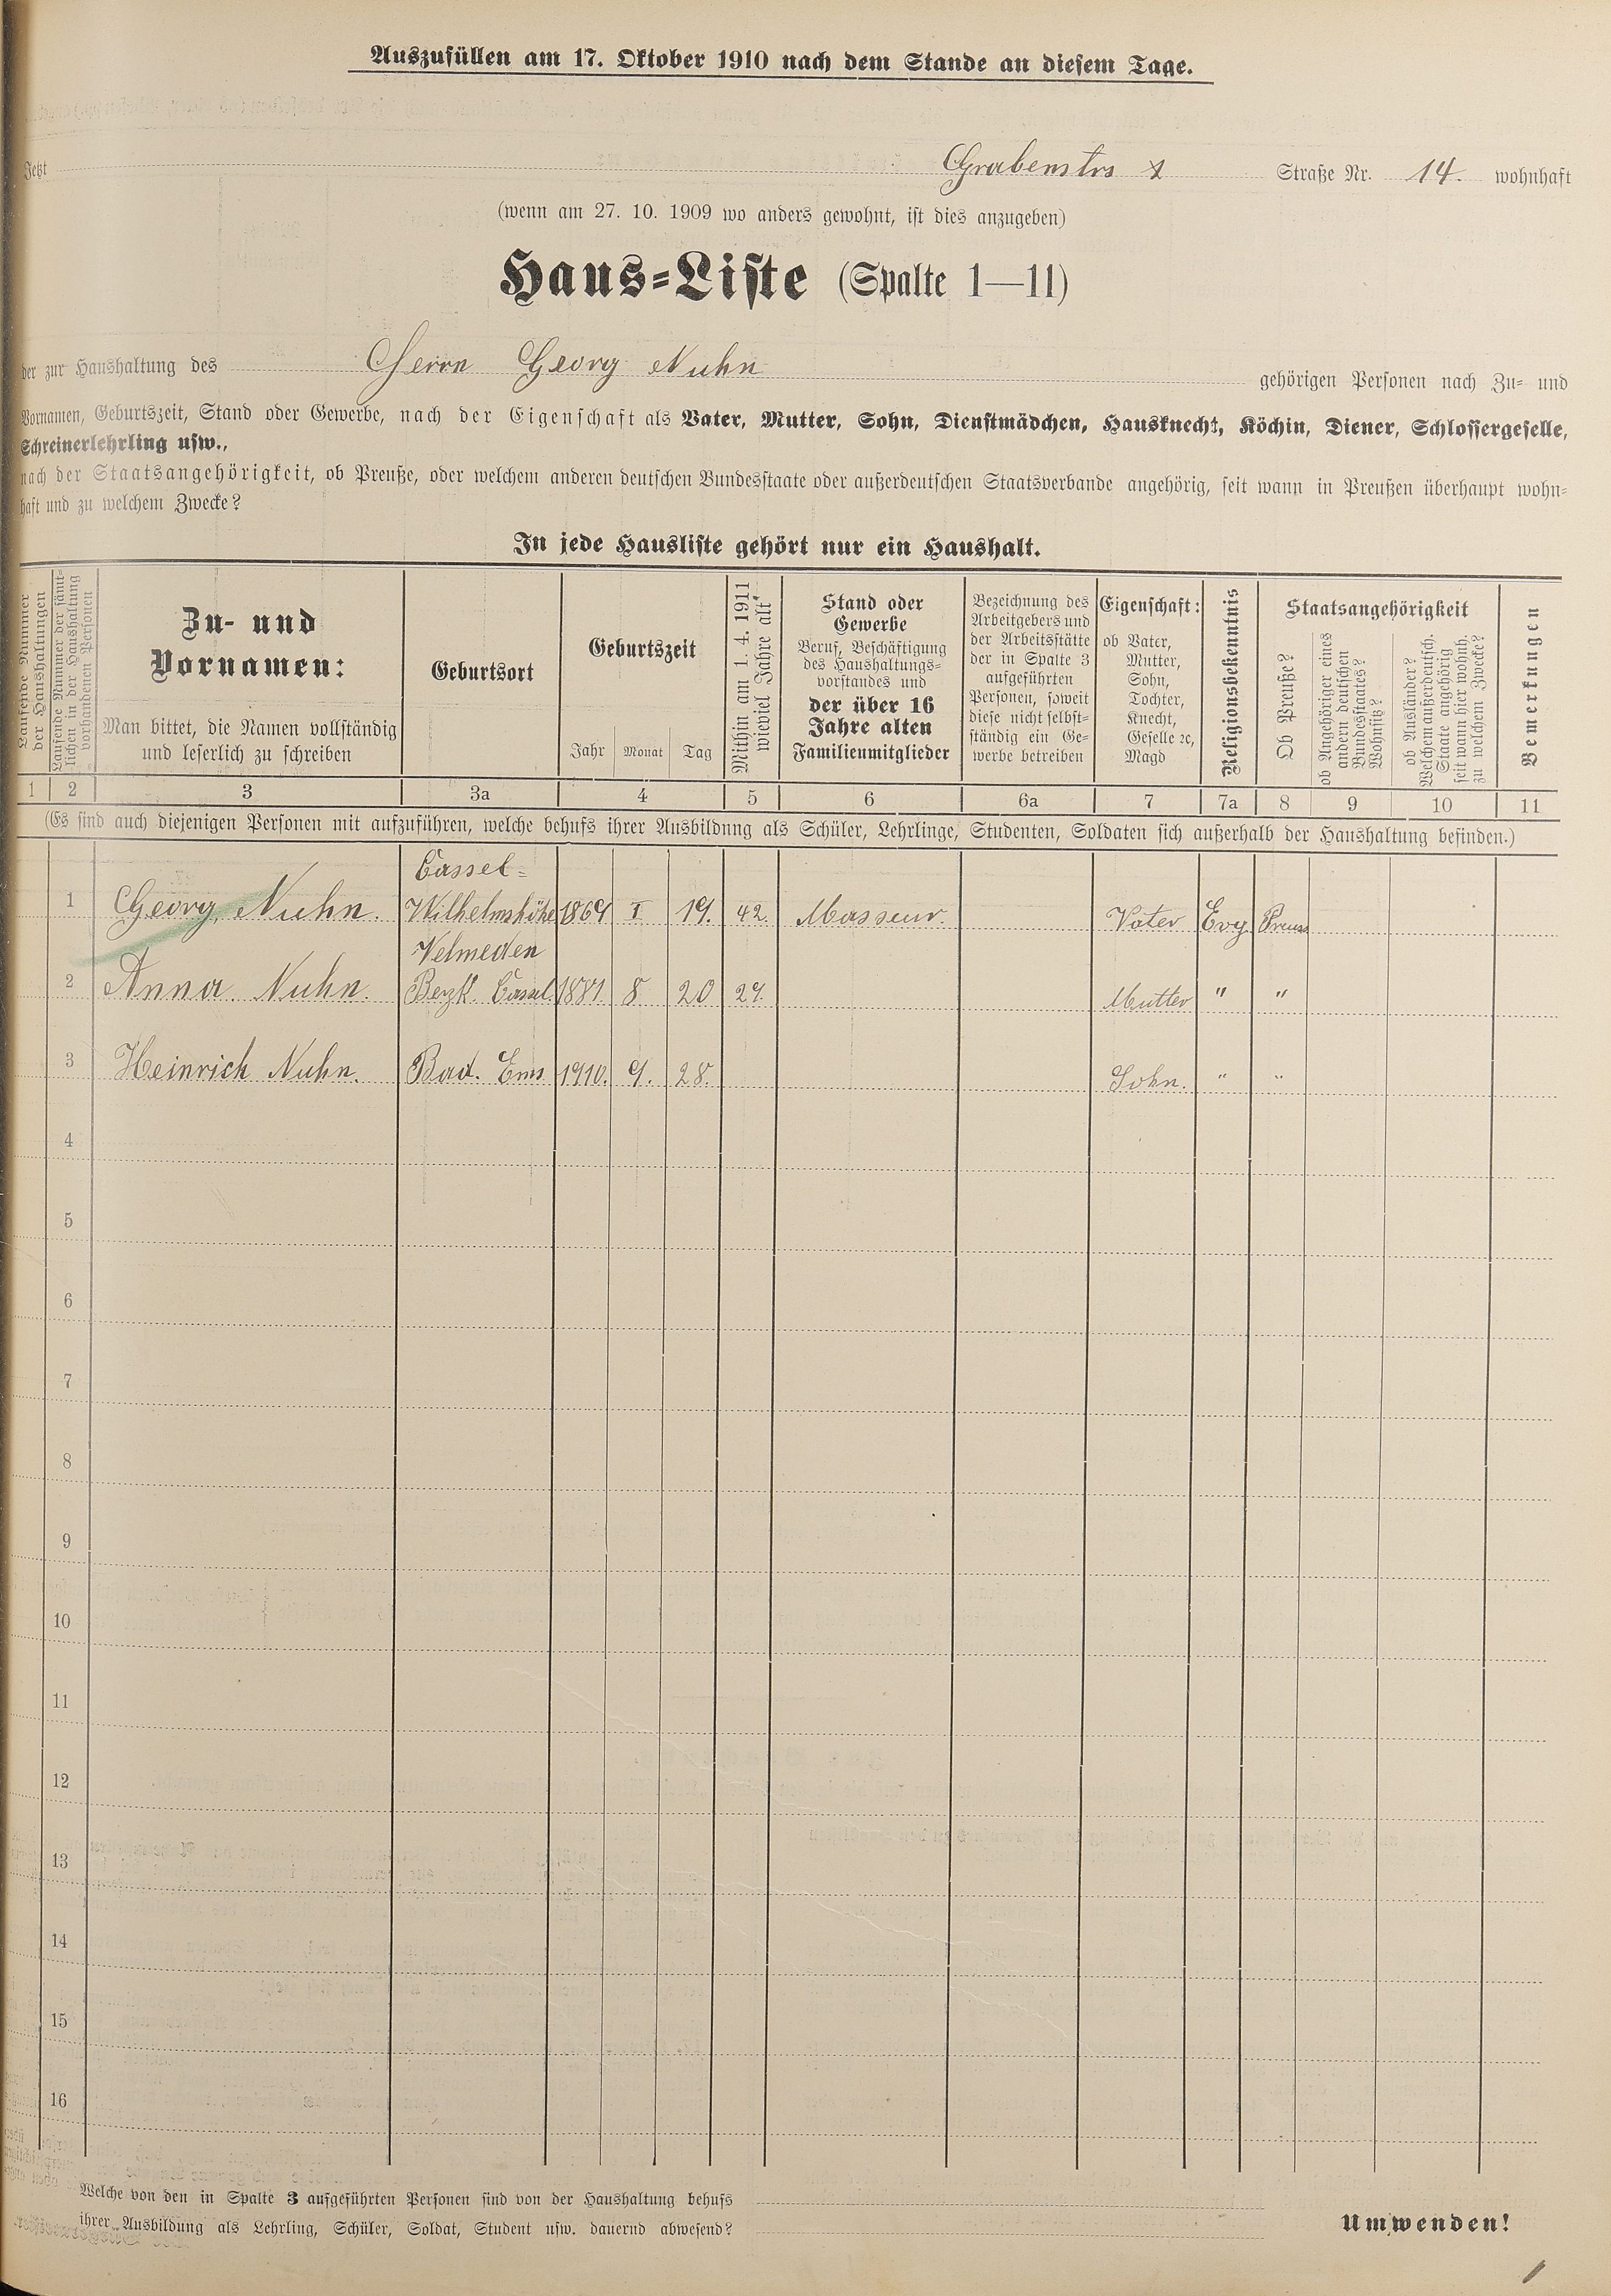 Auszufüllen am 17. Oktober 1910 nach dem Stande an diesem Tage.
Jetzt Grabenstrs Straße Nr. 14. wohnhaft
(wenn am 27. 10. 1909 wo anders gewohnt, ist dies anzugeben)
Haus-Liste (Spalte 1—11)
der zur Haushaltung des Herrn Georg Nuhn gehörigen Personen nach Zu- und
Vornamen, Geburtszeit, Stand oder Gewerbe, nach der Eigenschaft als Vater, Mutter, Sohn, Dienstmädchen, Hausknecht, Köchin, Diener, Schlossergeselle,
Schreinerlehrling usw.,
nach der Staatsangehörigkeit, ob Preuße, oder welchem anderen deutschen Bundesstaate oder außerdeutschen Staatsverbande angehörig, seit wann in Preußen überhaupt wohn-
haft und zu welchem Zwecke?
In jede Hausliste gehört nur ein Haushalt.
Laufende Nummer
der Haushaltungen
Laufende Nummer der sämt-
lichen in der Haushaltung
vorhandenen Personen
Zu- und
Vornamen:
Man bittet, die Namen vollständig
und leserlich zu schreiben
Geburtsort
Geburtszeit
Jahr Monat Tag
Mithin am 1. 4. 1911
wieviel Jahre alt
Stand oder
Gewerbe
Beruf, Beschäftigung
des Haushaltungs-
vorstandes und
der über 16
Jahre alten
Familienmitglieder
Bezeichnung des
Arbeitgebers und
der Arbeitsstätte
der in Spalte 3
aufgeführten
Personen, soweit
diese nicht selbst-
ständig ein Ge-
werbe betreiben
Eigenschaft:
ob Vater,
Mutter,
Sohn,
Tochter,
Knecht,
Geselle ꝛc,
Magd
Religionsbekenntnis
Staatsangehörigkeit
Ob Preuße?
ob Angehöriger eines
andern deutschen
Bundesstaates?
Wohnsitz?
ob Ausländer?
Welchem außerdeutsch.
Staate angehörig
seit wann hier wohnh.
zu welchem Zwecke?
Bemerkungen
1 2 3 3a 4 5 6 6a 7 7a 8 9 10 11
(Es sind auch diejenigen Personen mit aufzuführen, welche behufs ihrer Ausbildung als Schüler, Lehrlinge, Studenten, Soldaten sich außerhalb der Haushaltung befinden.)
Cassel-
1 Georg Nuhn. Wilhelmshöhe 1869 I 19. 42. Masseur. Vater Evg Preuss
Velmeden
2 Anna Nuhn. Bezk. Cassel 1881 8 20 29. Mutter " "
3 Heinrich Nuhn. Bad. Ems 1910. 9. 28. Sohn. " "
4
5
6
7
8
9
10
11
12
13
14
15
16
Welche von den in Spalte 3 aufgeführten Personen sind von der Haushaltung behufs
ihrer Ausbildung als Lehrling, Schüler, Soldat, Student usw. dauernd abwesend?
Umwenden!